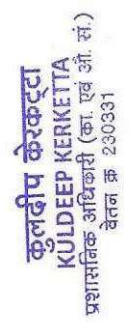 कुलदीप केरकट्टा
KULDEEP KERKETTA
प्रशासनिक अधिकारी (का. एवं औ. सं.)
वेतन क्र 230331